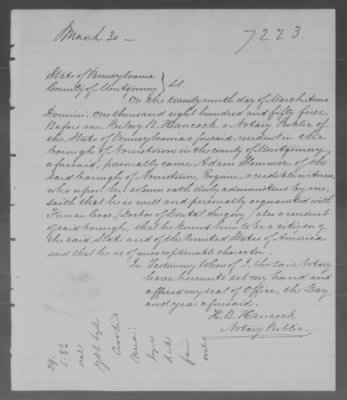 March 30 —
7223.
State of Pennsylvania
County of Montgomery } SS.
On the twenty ninth day of March Anno
Domini, one thousand eight hundred and fifty five
Before me Hilary B. Hancock a Notary Public of
the State of Pennsylvania aforesaid, resident in the
borough of Norristown in the county of Montgomery
aforesaid, personally came Adam Slemmer, of the
said borough of Norristown Esquire, a credible witness
who upon his solemn oath duly administered by me,
saith that he is well and personally acquainted with
Doctor of Dental Surgery, also a resident
of said borough, that he knows him to be a citizen of
the said State and of the United States of America
and that he is of unexceptionable character.
In Testimony Whereof I, the said Notary
have hereunto set my hand and
affixed my seal of Office, the Day
and year aforesaid.
H. B. Hancock
Notary Public.
29
5.8½
oval